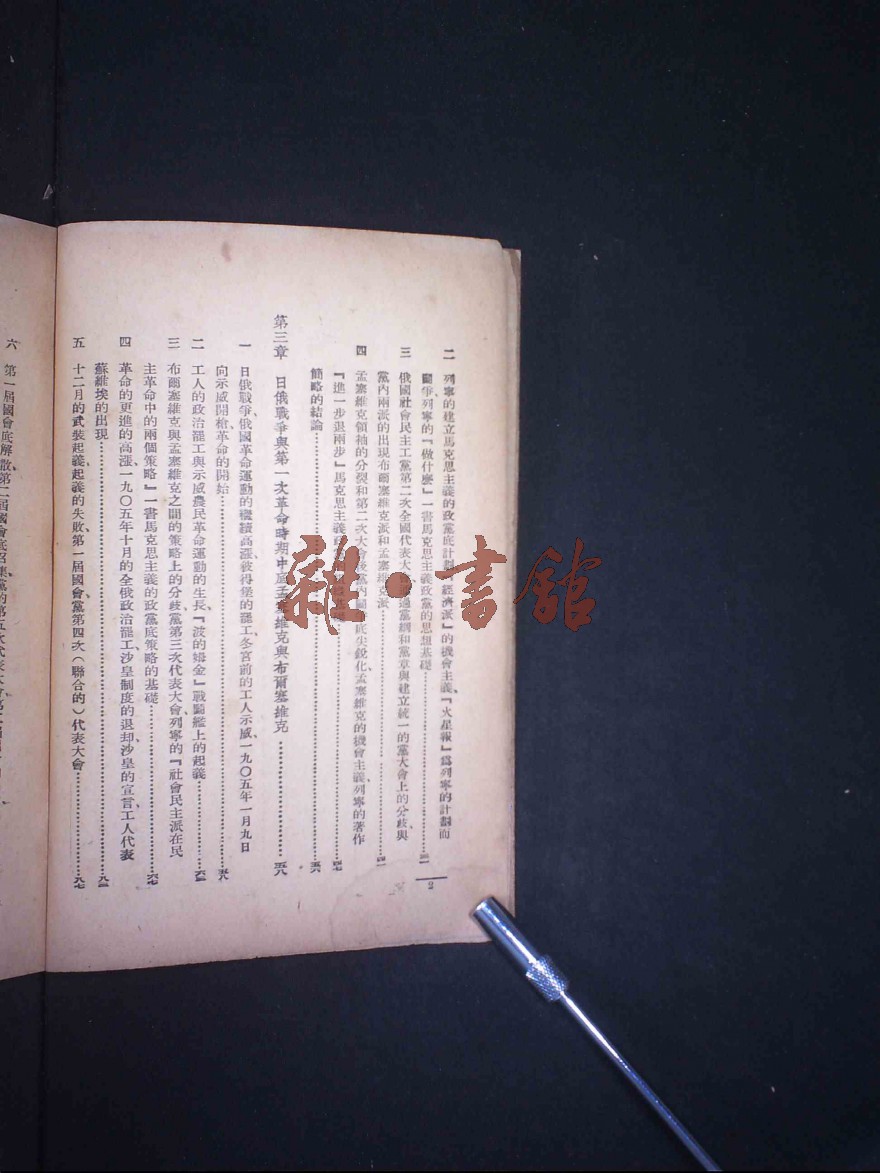 二 列寧的建立馬克思主義的政黨底計劃『經濟派』的機會主義、『火星報』爲列寧的計劃而
鬭爭、列寧的『做什麼』一書馬克思主義政黨的思想基礎
三 俄國社會民主工黨第二次全國代表大會 過黨綱和黨章與建立統一的黨大會上的分歧與
黨內兩派的出現布爾塞維克派和孟塞維克派
四 孟塞維克領袖的分裂和第二次大會後黨內鬭 底尖銳化、孟塞維克的機會主義、列寧的著作
『進一步退兩步』馬克思主義
簡略的結論……五六
第三章 日俄戰爭與第一次革命時期中底孟塞維克與布爾塞維克……五八
一 日俄戰爭、俄國革命運動的繼續高漲、彼得堡的罷工、冬宮前的工人示威、一九〇五年一月九日
向示威開槍、革命的開始……五八
二 工人的政治罷工與示威、農民革命運動的生長、『波的姆金』戰鬭艦上的起義
三 布爾塞維克與孟塞維克之間的策略上的分歧、黨第三次代表大會、列寧的『社會民主派在民
主革命中的兩個策略』一書馬克思主義的政黨底策略的基礎……六七
四 革命的更進的高漲、一九〇五年十月的全俄政治罷工、沙皇制度的退却、沙皇的宣言、工人代表
蘇維埃的出現
五 十二月的武裝起義、起義的失敗、第一屆國會、黨第四次（聯合的）代表大會……九七
六 第一屆國會底解散、第二屆國會底召集、黨的第五次代表大會
2
雜·書館